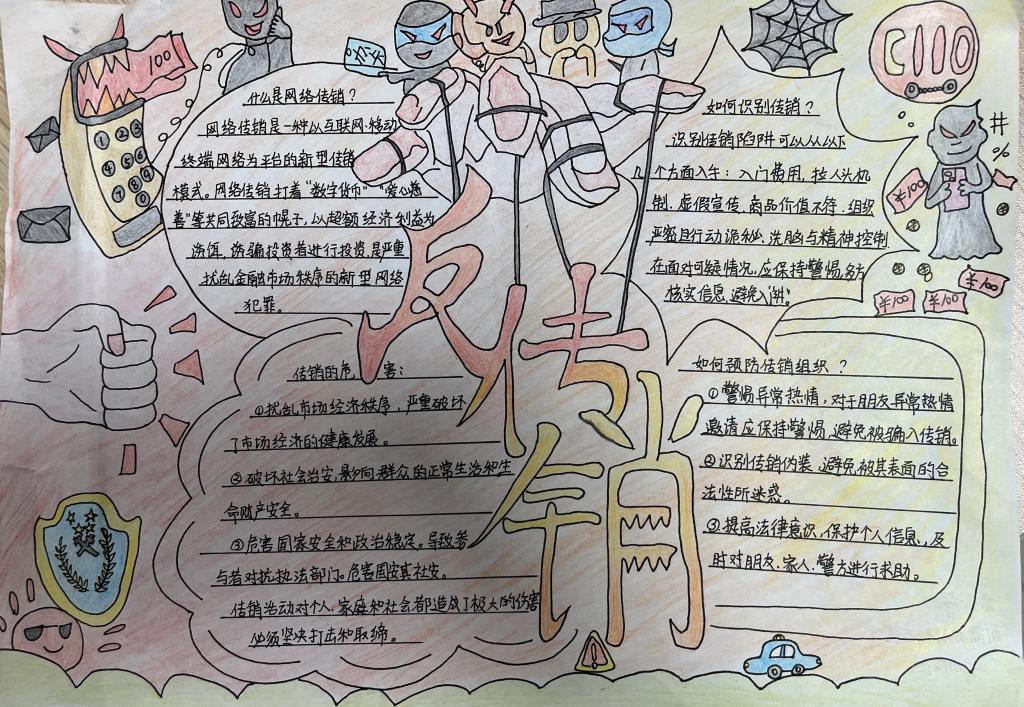 什么是网络传销？
网络传销是一种以互联网、移动
终端网络为平台的新型传销
模式。网络传销打着"数字货币""爱心慈
善"等共同致富的幌子，以超额经济利益为
诱饵，诱骗投资者进行投资，是严重
扰乱金融市场秩序的新型网络
犯罪。
如何识别传销？
识别传销陷阱可以从从以下
几个方面入手：入门费用，拉人头机
制，虚假宣传、商品价值不符，组织
严密且行动诡秘，洗脑与精神控制
在面对可疑情况，应保持警惕，多方
核实信息，避免入"阱"。
反传销
传销的危害：
①扰乱市场经济秩序，严重破坏
了市场经济的健康发展。
②破坏社会治安，影响群众的正常生活和生
命财产安全。
③危害国家安全和政治稳定。导致参
与者对抗执法部门。危害国安其社安。
传销活动对个人、家庭和社会都造成了极大的伤害
必须坚决打击和取缔。
如何预防传销组织？
①警惕异常热情，对于朋友异常热情
邀请应保持警惕，避免被骗入传销。
②识别传销伪装，避免被其表面的合
法性所迷惑。
③提高法律意识，保护个人信息，及
时对朋友、家人、警方进行求助。
100
1 2 3
4 5 6
7 8 9
110
#
%
¥100
¥100
¥100
¥100
!